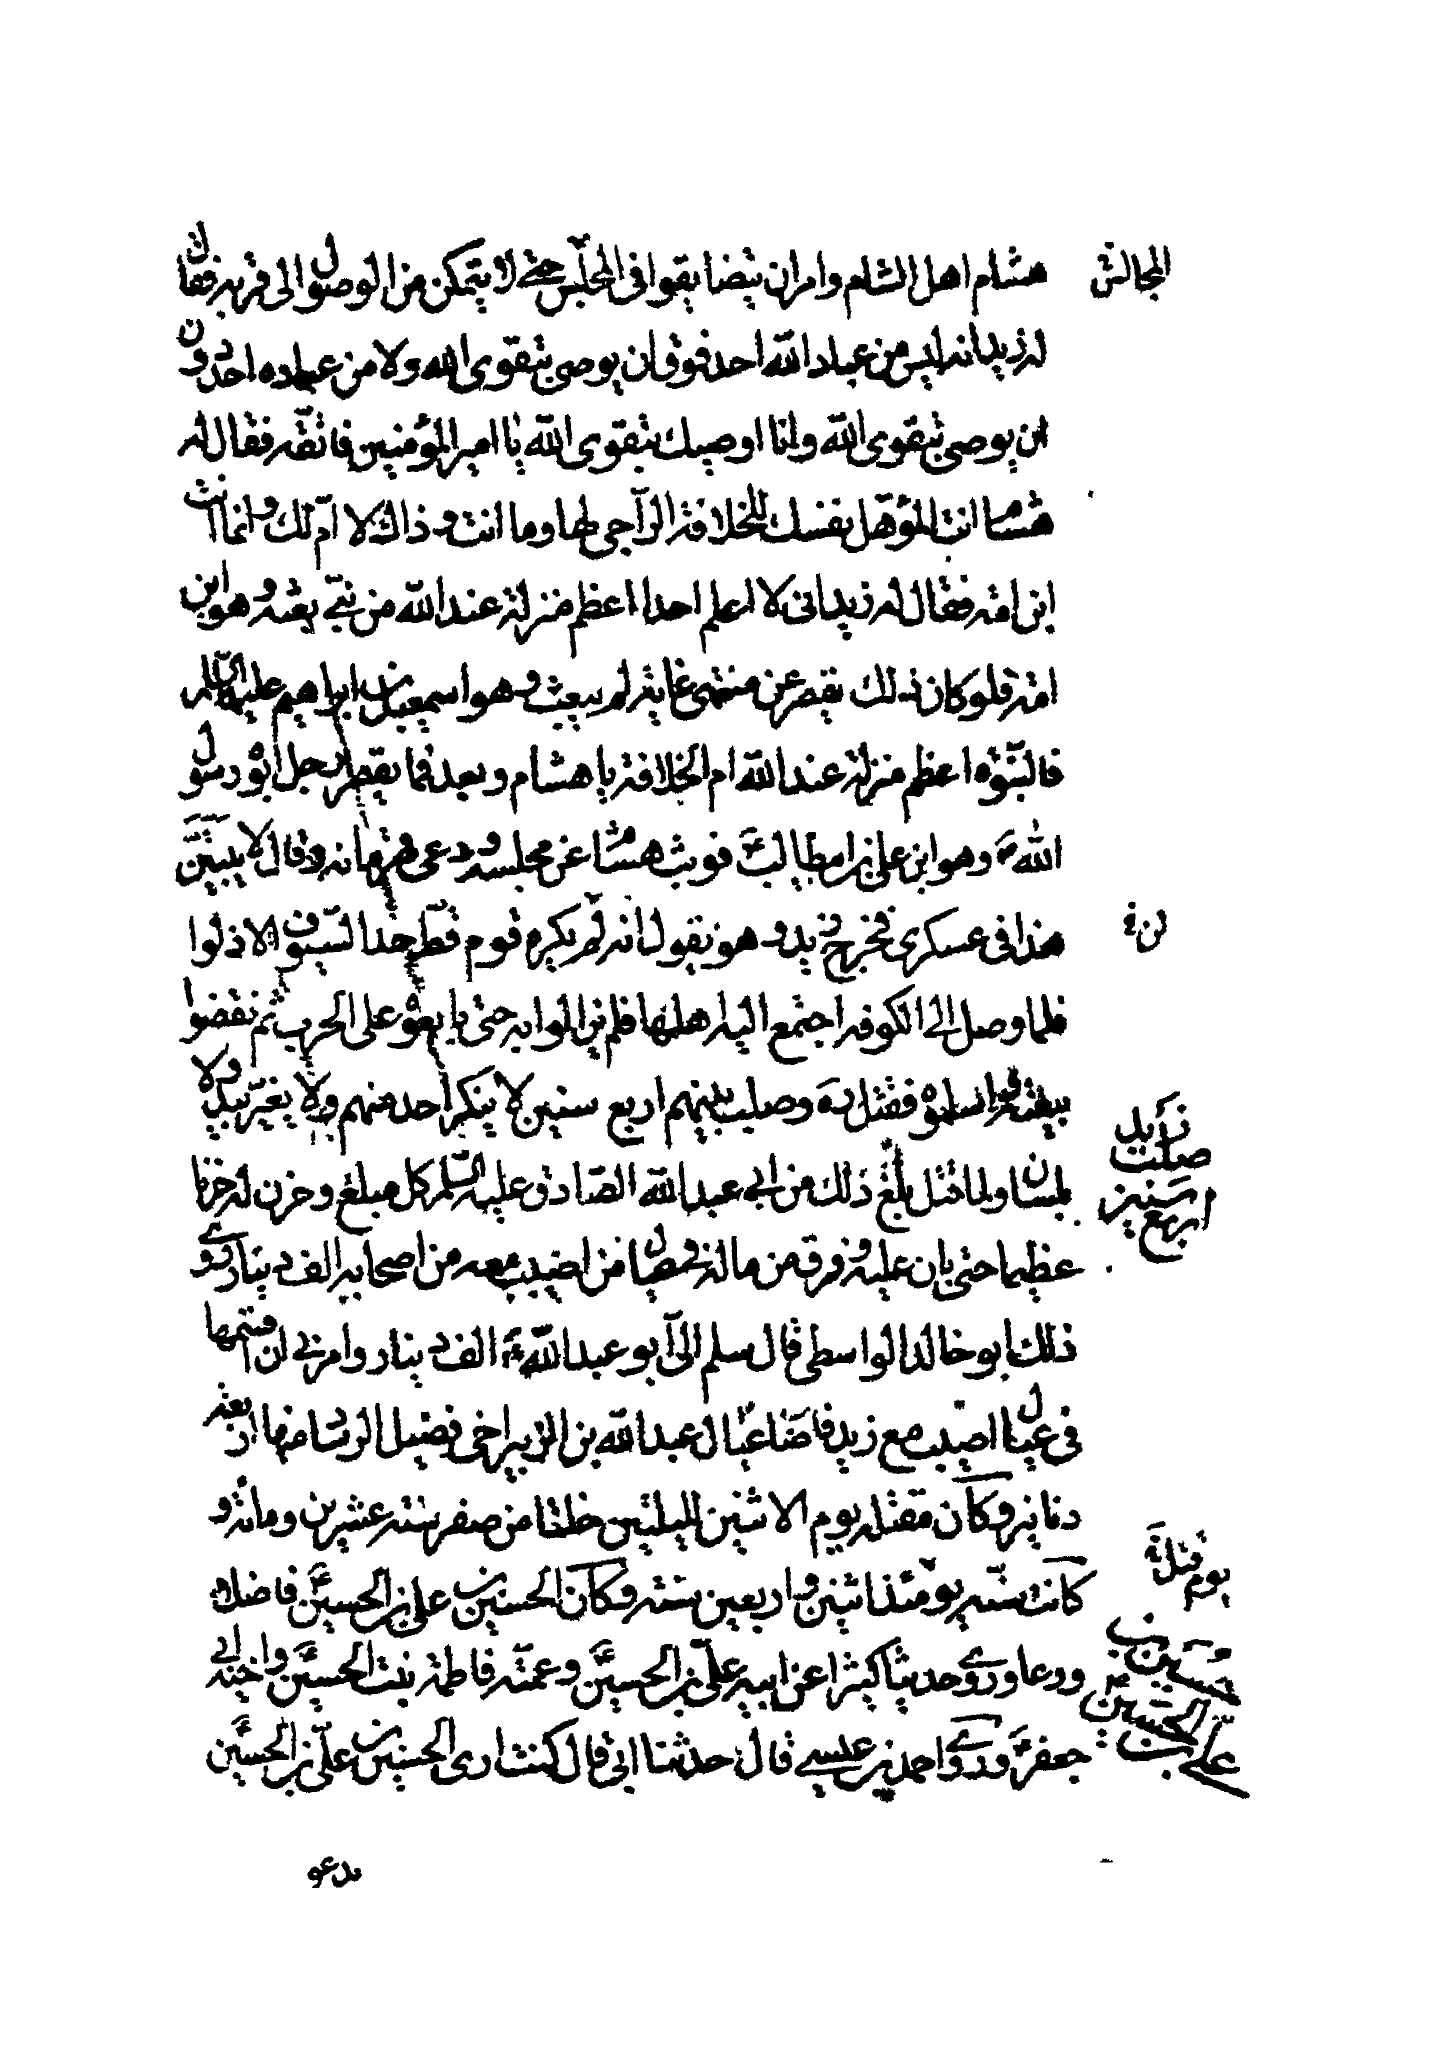 هشام اهل الشام وامر ان يتضايقوا في المجلس حتى لا يتمكن من الوصول الى قربه فقال
المجالس
له زيد انه ليس من عباد الله احد فوق ان يوصى بتقوى الله ولا من عباده احد دون
ان يوصى بتقوى الله وانا اوصيك بتقوى الله يا امير المؤمنين فاتقه فقال له
هشام انت المؤهل نفسك للخلافة الراجي لها وما انت وذاك لا ام لك وانما انت
ابن امة فقال له زيد اني لا اعلم احدا اعظم منزلة عند الله من نبي بعثه وهو ابن
امة فلو كان ذلك يقصر عن منتهى غاية لم يبعث وهو اسمعيل بن ابراهيم عليه السلم
فالنبوة اعظم منزلة عند الله ام الخلافة يا هشام وبعد فما يقصر برجل ابوه رسول
الله ص وهو ابن علي بن ابيطالب ع فوثب هشام عن مجلسه ودعى قهرمانه وقال لا يبيتن
هذا في عسكرى فخرج زيد وهو يقول انه لم يكره قوم قط حد السيوف الا ذلوا
فلما وصل الى الكوفه اجتمع اليه اهلها فلم يزالوا به حتى بايعوه على الحرب ثم نقضوا
بيعته واسلموه فقتل ره وصلب بينهم اربع سنين لا ينكر احد منهم ولا يغير بيد ولا
زيد
صلب
اربع سنين
بلسان ولما قتل بلغ ذلك من ابي عبد الله الصادق عليه السلم كل مبلغ وحزن له حزنا
عظيما حتى بان عليه وفرق من ماله في عيال من اصيب معه من اصحابه الف دينار روى
ذلك ابو خالد الواسطى قال سلم الى ابو عبد الله ع الف دينار وامرني ان اقسمها
في عيال من اصيب مع زيد فاصاب عيال عبد الله بن الزبير اخى فضيل الرسان منها اربعة
دنانير وكان مقتله يوم الاثنين لليلتين خلتا من صفر سنة عشرين ومائة و
كانت سنه يومئذ اثنين واربعين سنة وكان الحسين بن علي بن الحسين ع فاضلا
يوم قتله
ورعا وروى حديثا كثيرا عن ابيه علي بن الحسين ع وعمته فاطمة بنت الحسين ع واخيه ابي
حسين بن
علي بن الحسين
جعفر ع وروى احمد بن عيسى قال حدثنا ابى قال كنت ارى الحسين بن علي بن الحسين
يدعو